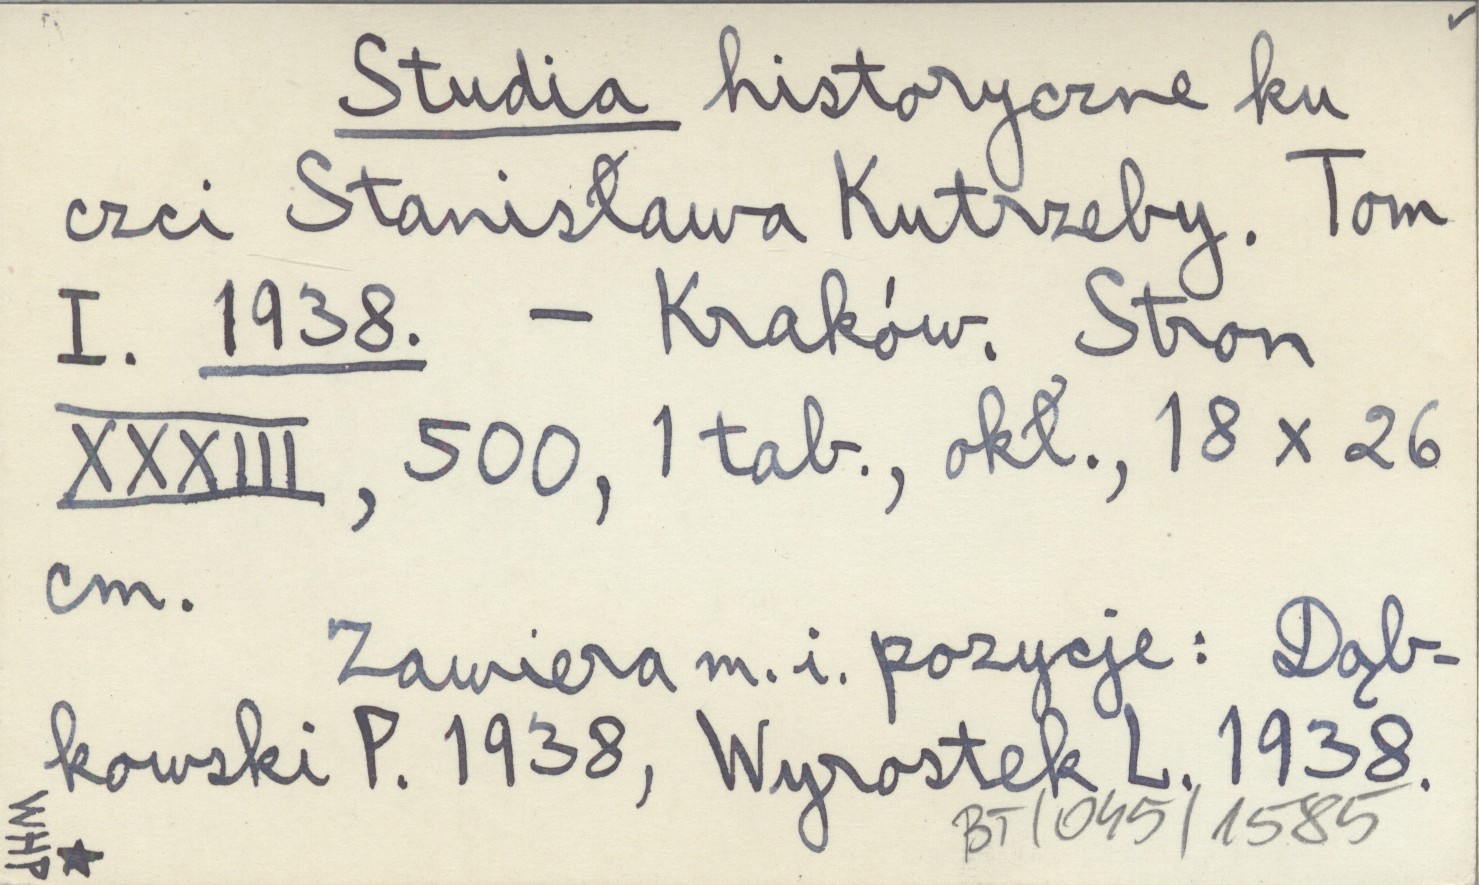 Studia historyczne ku
czci Stanisława Kutrzeby. Tom
I. 1938. – Kraków. Stron
XXXIII, 500, 1 tab., okł., 18 x 26
cm.
Zawiera m. i. pozycje: Dąb-
kowski P. 1938, Wyrostek L. 1938.
BT/045/1585
WHP